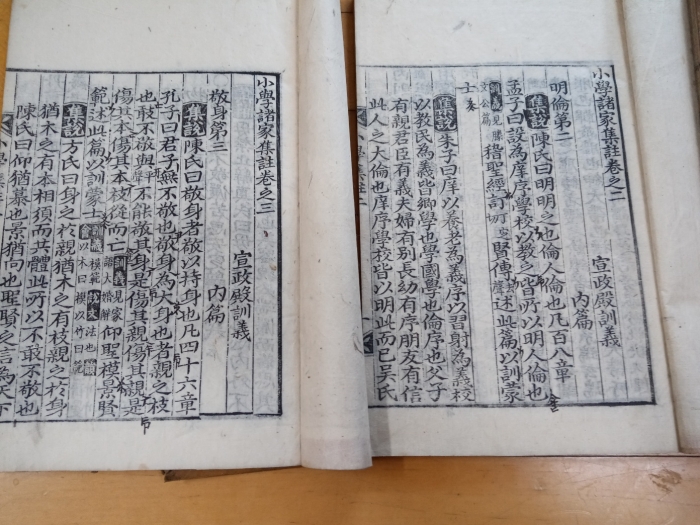 小學諸家集註卷之二
宣政殿訓義
內篇
明倫第二
集說陳氏曰明明之也倫人倫也凡百八章
孟子曰設為庠序學校以教之皆所以明人倫也
訓義見滕文公篇稽聖經訂賢傳述此篇以訓蒙
士
集說朱子曰庠以養老為義序以習射為義校
以教民為義皆鄉學也學國學也倫序也父子
有親君臣有義夫婦有別長幼有序朋友有信
此人之大倫也庠序學校皆以明此而已吳氏
小學諸家集註卷之三
宣政殿訓義
內篇
敬身第三
集說陳氏曰敬身者敬以持身也凡四十六章
孔子曰君子無不敬也敬身為大身也者親之枝
也敢不敬與不能敬其身是傷其親傷其親是
傷其本傷其本枝從而亡訓義見家語大婚解仰聖模景賢
範述此篇以訓蒙士訓義模範法也韻會以木曰模以竹曰範
集說方氏曰身之於親猶木之有枝親之於身
猶木之有本相須而共體此所以不敢不敬也
陳氏曰仰猶慕也景猶向也聖賢之言為天下